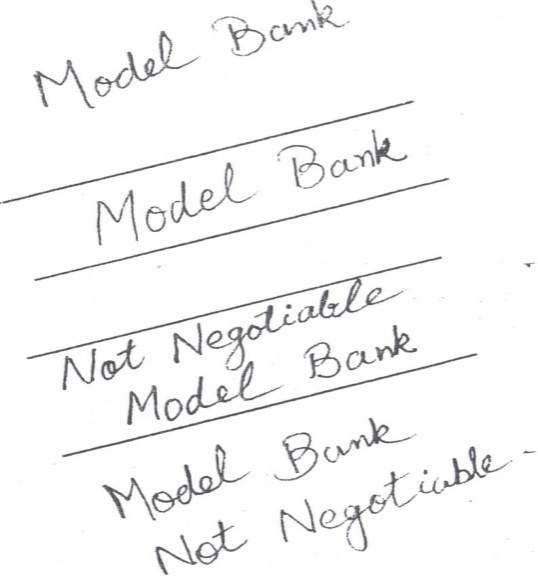 Model Bank
Model Bank
Not Negotiable
Model Bank
Model Bank
Not Negotiable